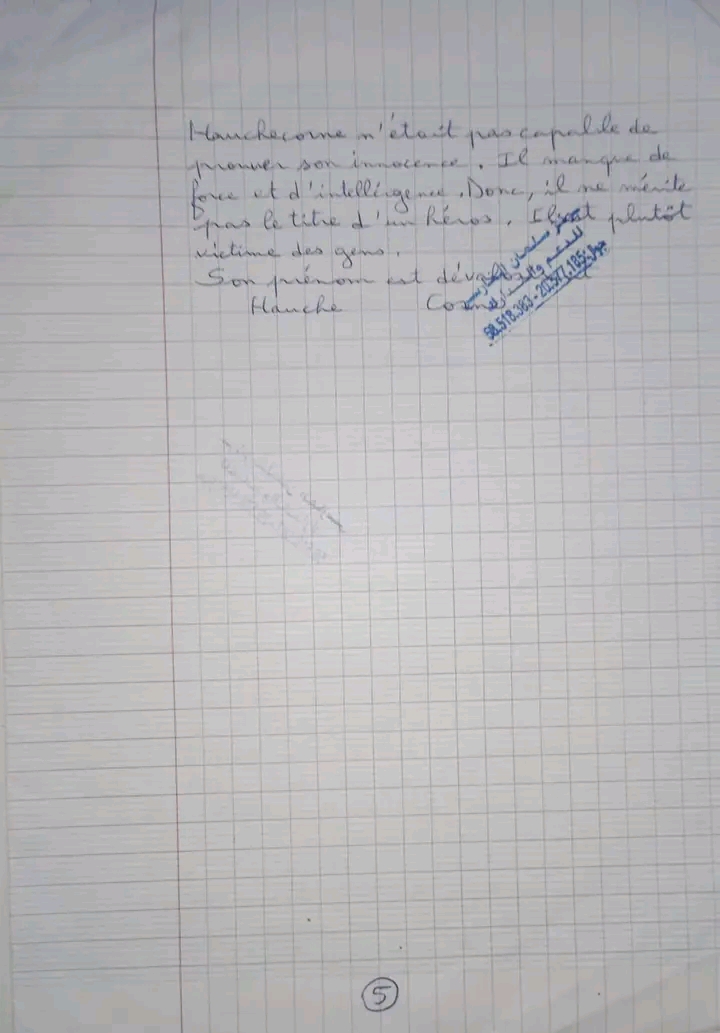 Hauchecorne n'était pas capable de
prouver son innocence. Il manque de
force et d'intelligence. Donc, il ne mérite
pas le titre d'un héros. Il est plutôt
victime des gens.
Son prénom est
Hauche
98.518.383 - 20.577.185
5